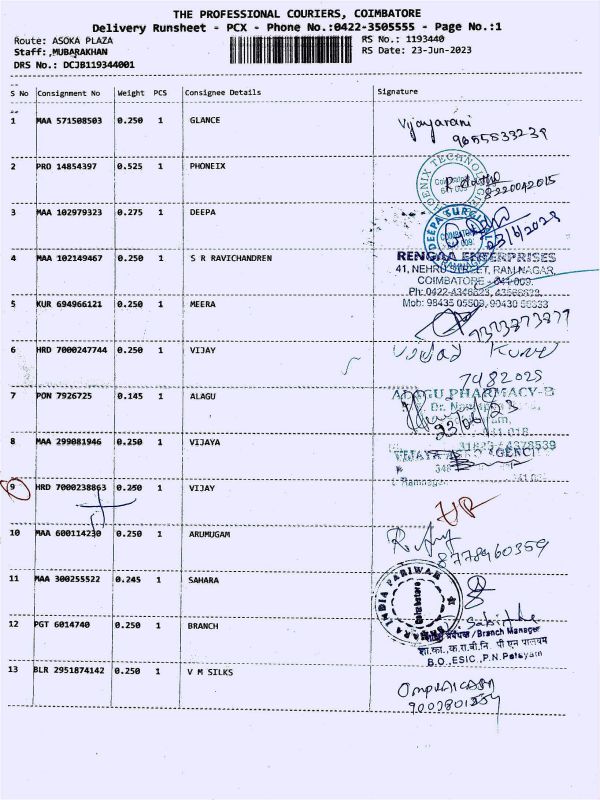 THE PROFESSIONAL COURIERS, COIMBATORE
Delivery Runsheet - PCX - Phone No.:0422-3505555 - Page No.:1
Route: ASOKA PLAZA RS No.: 1193440
Staff: ,MUBARAKHAN RS Date: 23-Jun-2023
DRS No.: DCJB119344001
S No Consignment No Weight PCS Consignee Details Signature
1 MAA 571508503 0.250 1 GLANCE Vijayarani
9655533239
2 PRO 14854397 0.525 1 PHONEIX
8220042015
3 MAA 102979323 0.275 1 DEEPA DEEPA SURGI
23/6/2023
4 MAA 102149467 0.250 1 S R RAVICHANDREN RENGAA ENTERPRISES
41, NEHRU STREET, RAM NAGAR,
COIMBATORE - 641 009.
5 KUR 694966121 0.250 1 MEERA
7373873877
6 HRD 7000247744 0.250 1 VIJAY
7 PON 7926725 0.145 1 ALAGU ALAGU PHARMACY-B
23/06/23
8 MAA 299081946 0.250 1 VIJAYA VIJAYA
9 HRD 7000238863 0.250 1 VIJAY
10 MAA 600114230 0.250 1 ARUMUGAM
8778460359
11 MAA 300255522 0.245 1 SAHARA SAHARA INDIA PARIWAR
12 PGT 6014740 0.250 1 BRANCH
प्रबंधक / Branch Manager
B.O.,ESIC.,P.N.Palayam
13 BLR 2951874142 0.250 1 V M SILKS